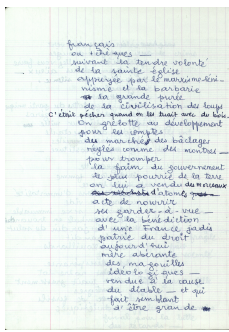 français
ou tchèques —
suivant la tendre volonté
de la sainte église
appuyée par le marxisme-léni-
nisme et la barbarie
la grande purée
de la civilisation des loups
C'était pécher quand on les tuait avec du bois.
On grelotte au développement
pour les comptes
des marchés des bâclages
réglés comme des montres —
pour tromper
la faim du gouvernement
le plus pourrie de la terre
on lui a vendu des morceaux
d'atomes
acte de nourrir
ses garder-à-vue —
avec la bénédiction
d'une France jadis
patrie du droit
aujourd'hui
mère aberante
des magouilles
idéologiques —
vendue à la cause
du diable — et qui
fait semblant
d'être grande